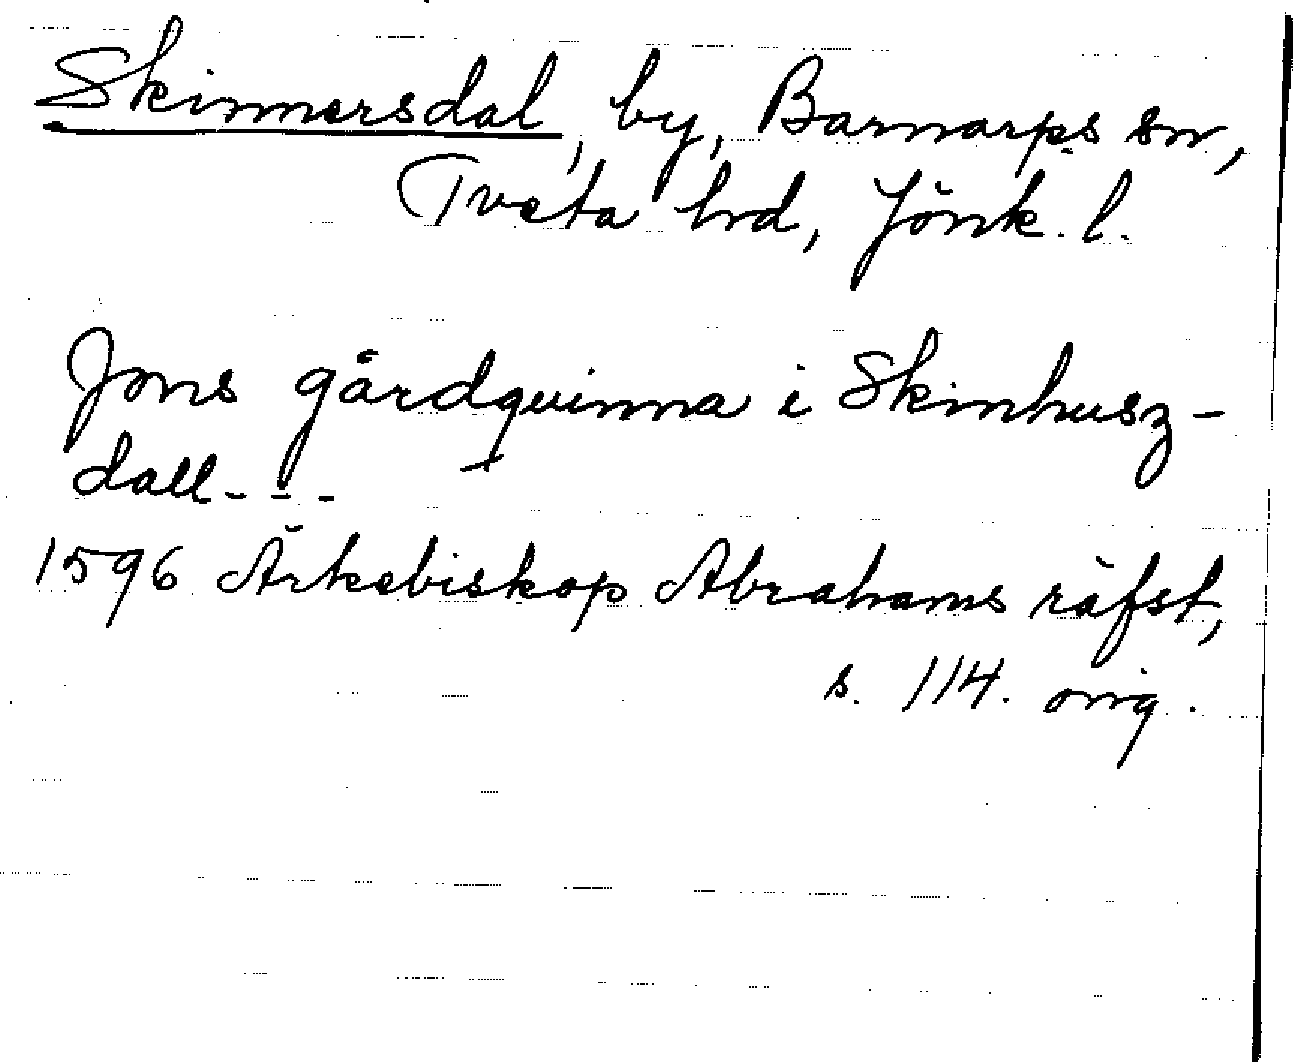 Skinnersdal, by, Barnarps sn,
Tveta hrd, Jönk. l.
Jons gårdquinna i Skinhusz-
dall - - -
1596 Ärkebiskop Abrahams räfst,
s. 114. orig.